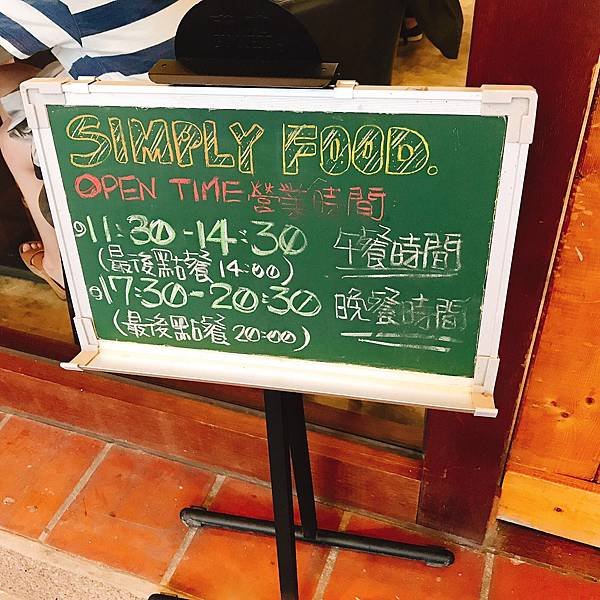 SIMPLY FOOD.
OPEN TIME 營業時間
①11:30-14:30 午餐時間
(最後點餐 14:00)
②17:30-20:30 晚餐時間
(最後點餐 20:00)